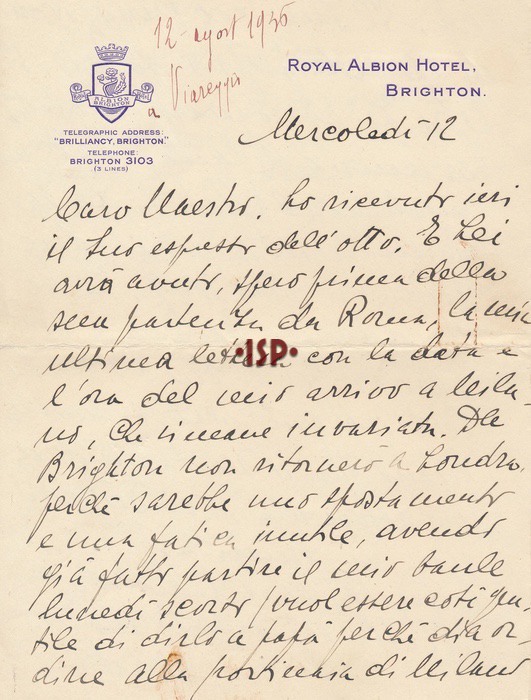 12 - agost 1936
a Viareggio
ALBION
BRIGHTON
TELEGRAPHIC ADDRESS:
"BRILLIANCY, BRIGHTON."
TELEPHONE:
BRIGHTON 3103
(3 LINES)
ROYAL ALBION HOTEL,
BRIGHTON.
Mercoledì 12
Caro Maestro, ho ricevuto ieri
il Suo espresso dell'otto. E Lei
avrà avuto, spero prima della
sua partenza da Roma, la mia
ultima lettera con la data e
l'ora del mio arrivo a Mila-
no, che rimane invariata. Da
Brighton non ritornerò a Londra,
perchè sarebbe uno spostamento
e una fatica inutile, avendo
già fatto partire il mio baule
lunedì scorso (vuol essere così gen-
tile di dirlo a papà perchè dia or-
dine alla portinaia di Milano
·ISP·